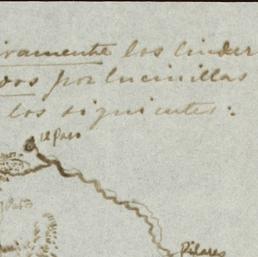 ivamente los linder
dos por lucinillas
los siguientes:
el Paso
Pilares